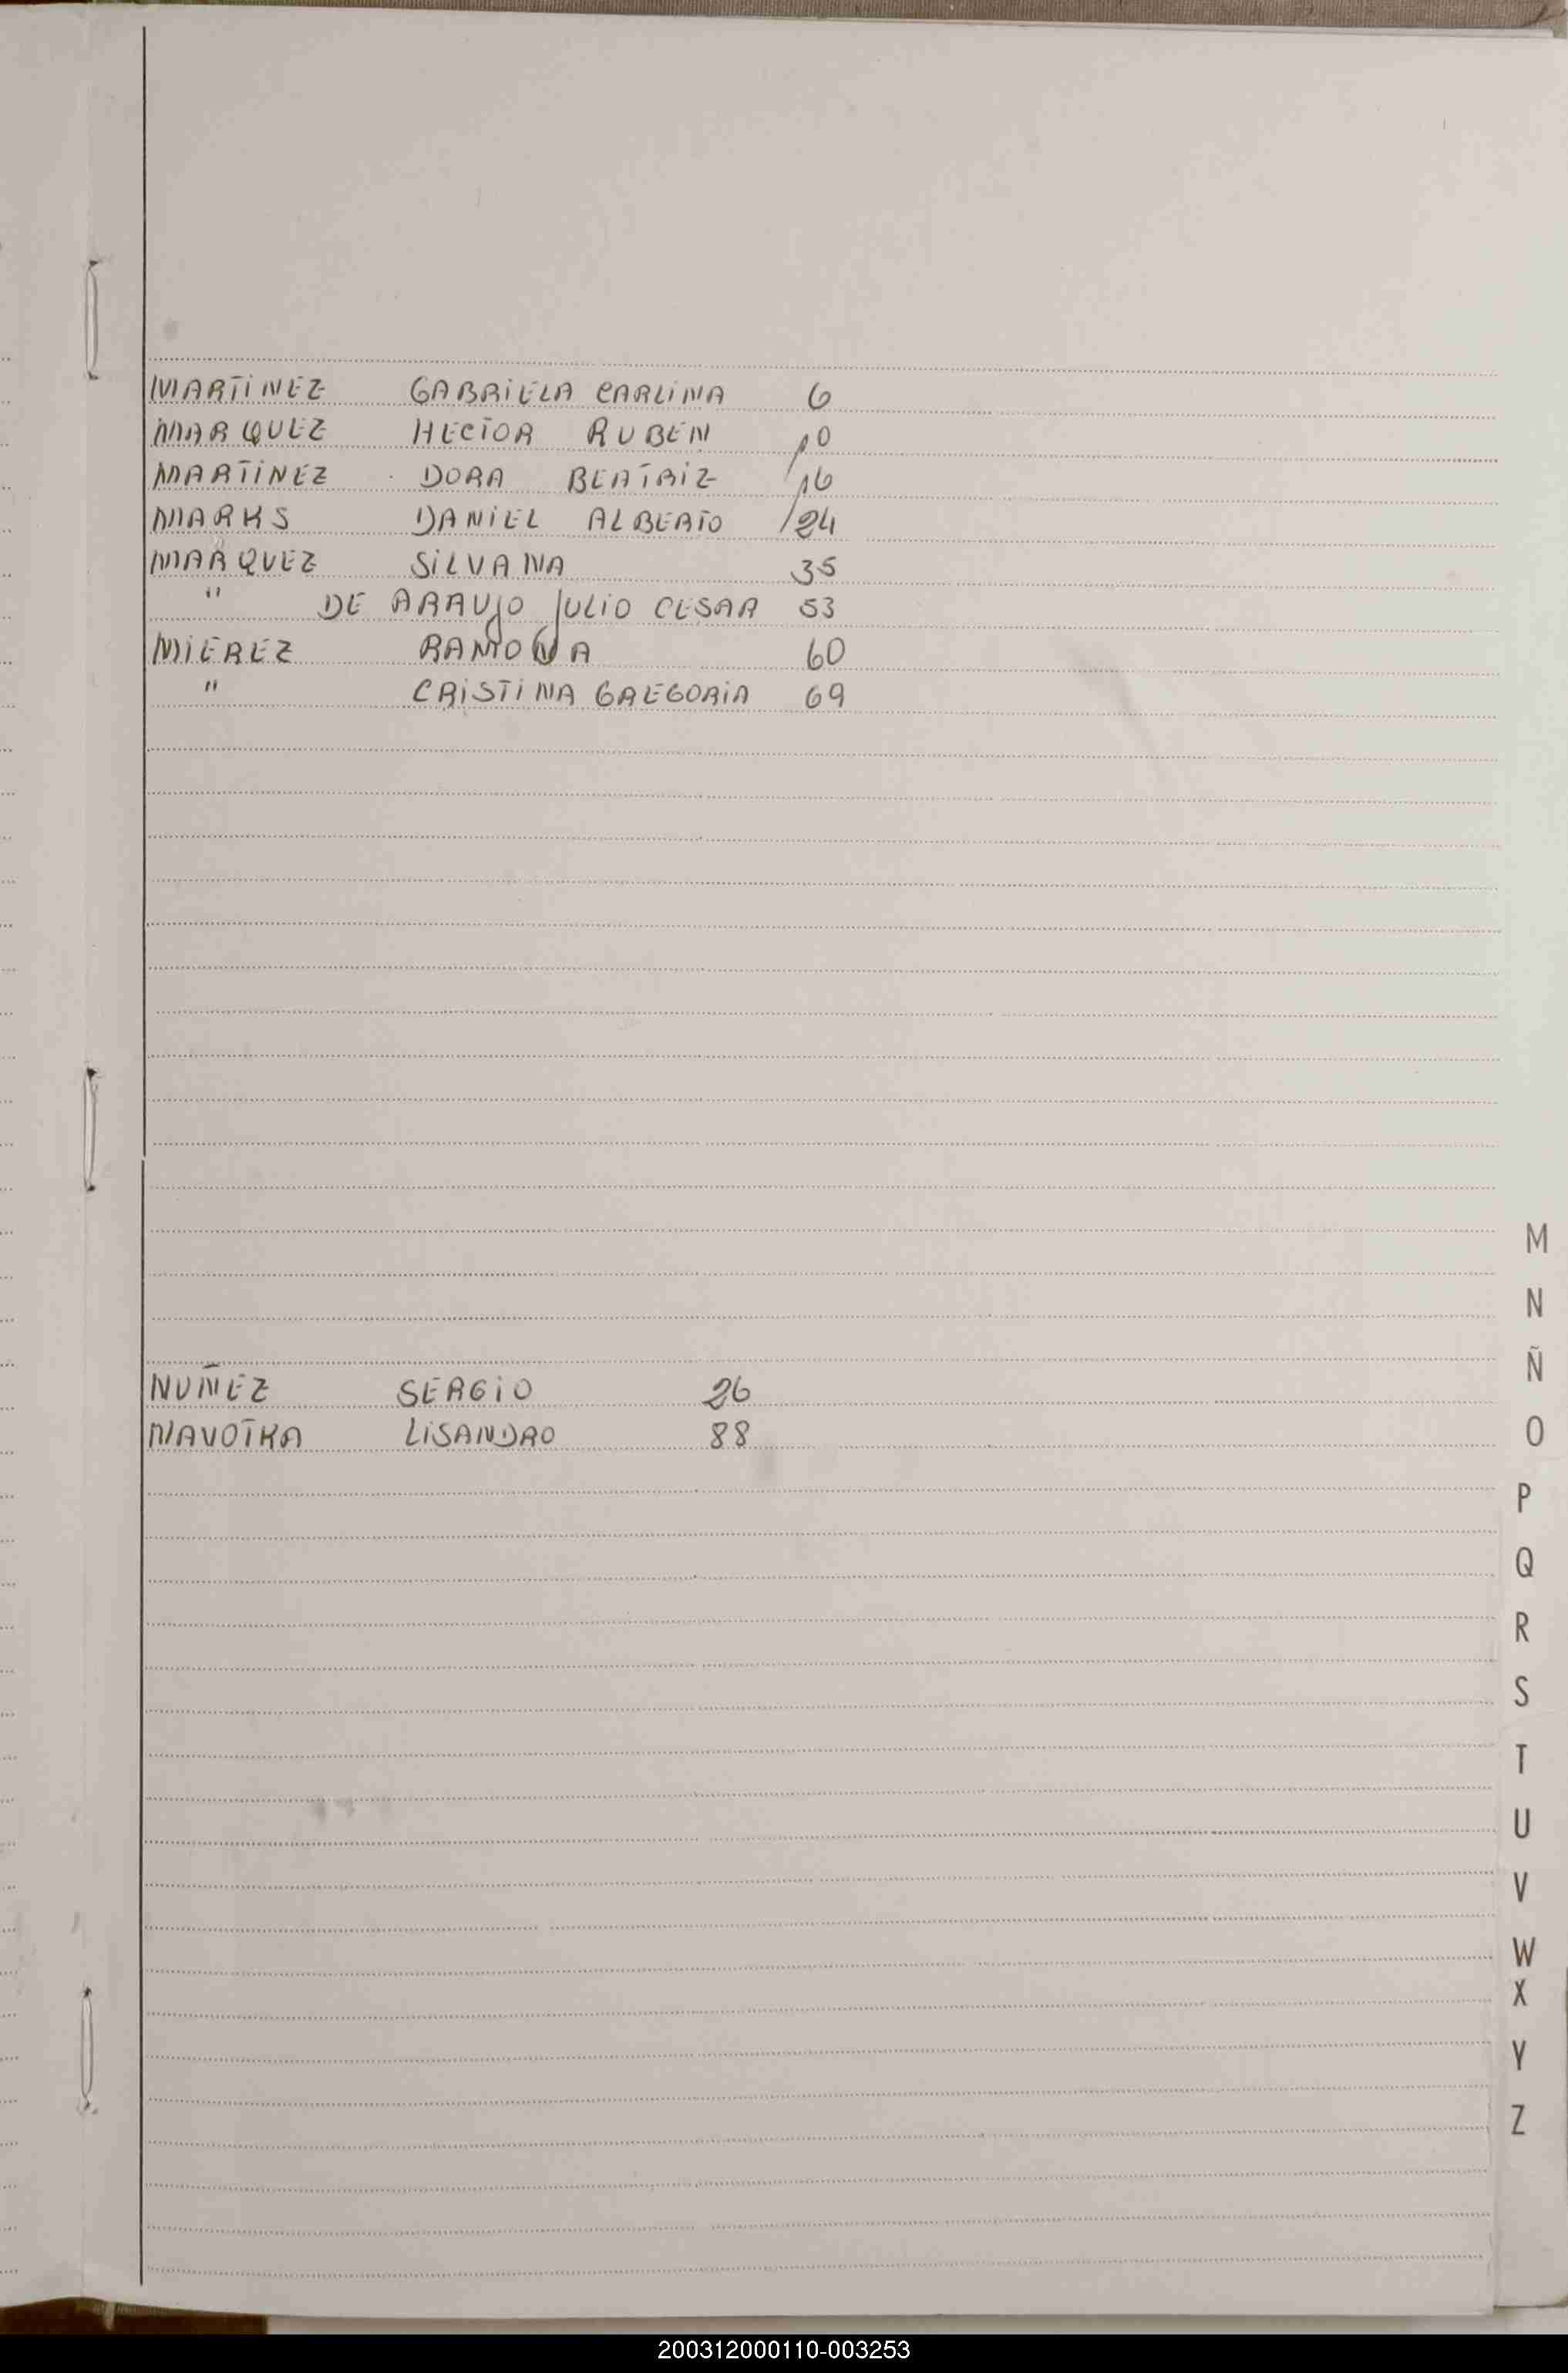 MARTINEZ GABRIELA CARLINA 6
MARQUEZ HECTOR RUBEN 10
MARTINEZ DORA BEATRIZ 16
MARKS DANIEL ALBERTO 24
MARQUEZ SILVANA 35
" DE ARAUJO JULIO CESAR 53
MIEREZ RAMONA 60
" CRISTINA GREGORIA 69
M
N
Ñ
NUÑEZ SERGIO 26
NAVOTKA LISANDRO 88
O
P
Q
R
S
T
U
V
W
X
Y
Z
200312000110-003253